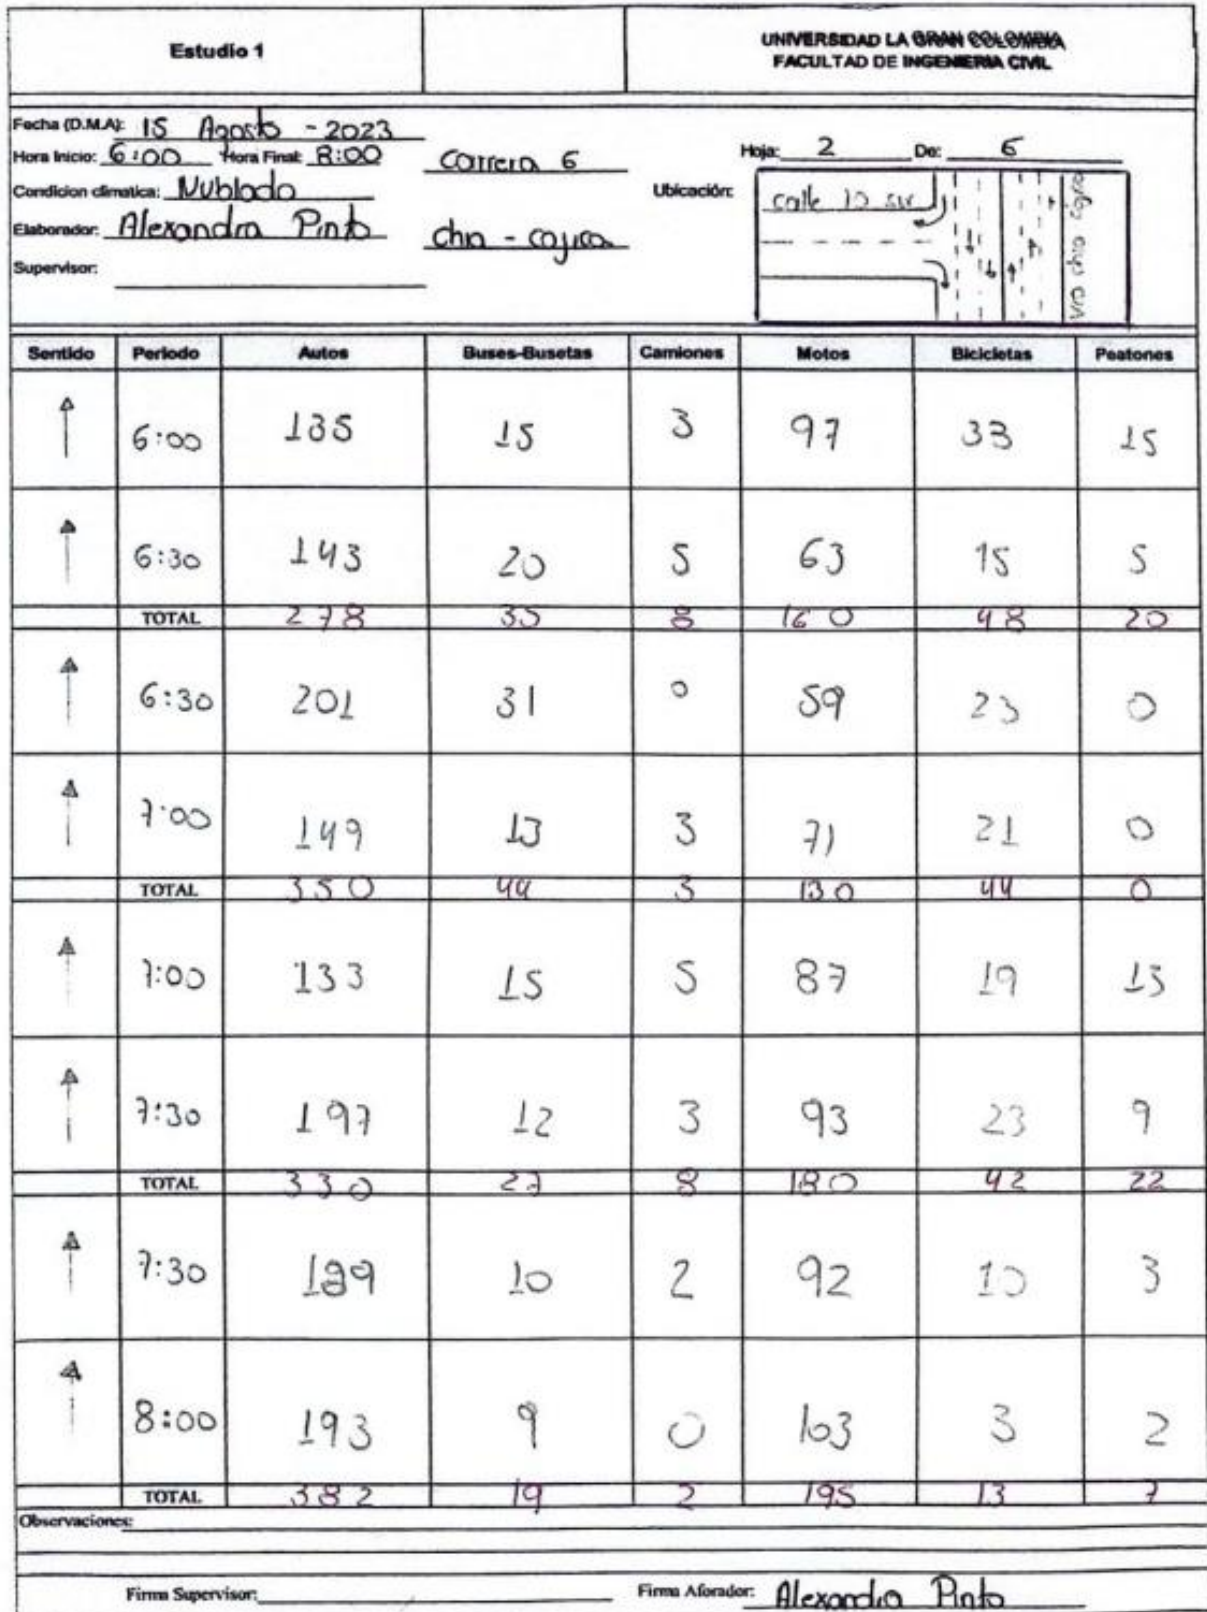 Estudio 1
UNIVERSIDAD LA GRAN COLOMBIA
FACULTAD DE INGENIERIA CIVIL
Fecha (D.M.A): 15 Agosto - 2023
Hora Inicio: 6:00 Hora Final: 8:00 Carrera 6 Hoja: 2 De: 6
Condicion climatica: Nublado Ubicación:
Elaborador: Alexandra Pinto chia - cajica
Supervisor:
calle 10 sur
via chia cajica
Sentido Periodo Autos Buses-Busetas Camiones Motos Bicicletas Peatones
6:00 135 15 3 97 33 15
6:30 143 20 5 63 15 5
TOTAL 278 35 8 160 48 20
6:30 201 31 0 59 23 0
7:00 149 13 3 71 21 0
TOTAL 350 44 3 130 44 0
7:00 133 15 5 87 19 13
7:30 197 12 3 93 23 9
TOTAL 330 27 8 180 42 22
7:30 189 10 2 92 10 3
8:00 193 9 0 103 3 2
TOTAL 382 19 2 195 13 7
Observaciones:
Firma Supervisor: Firma Aforador: Alexandra Pinto